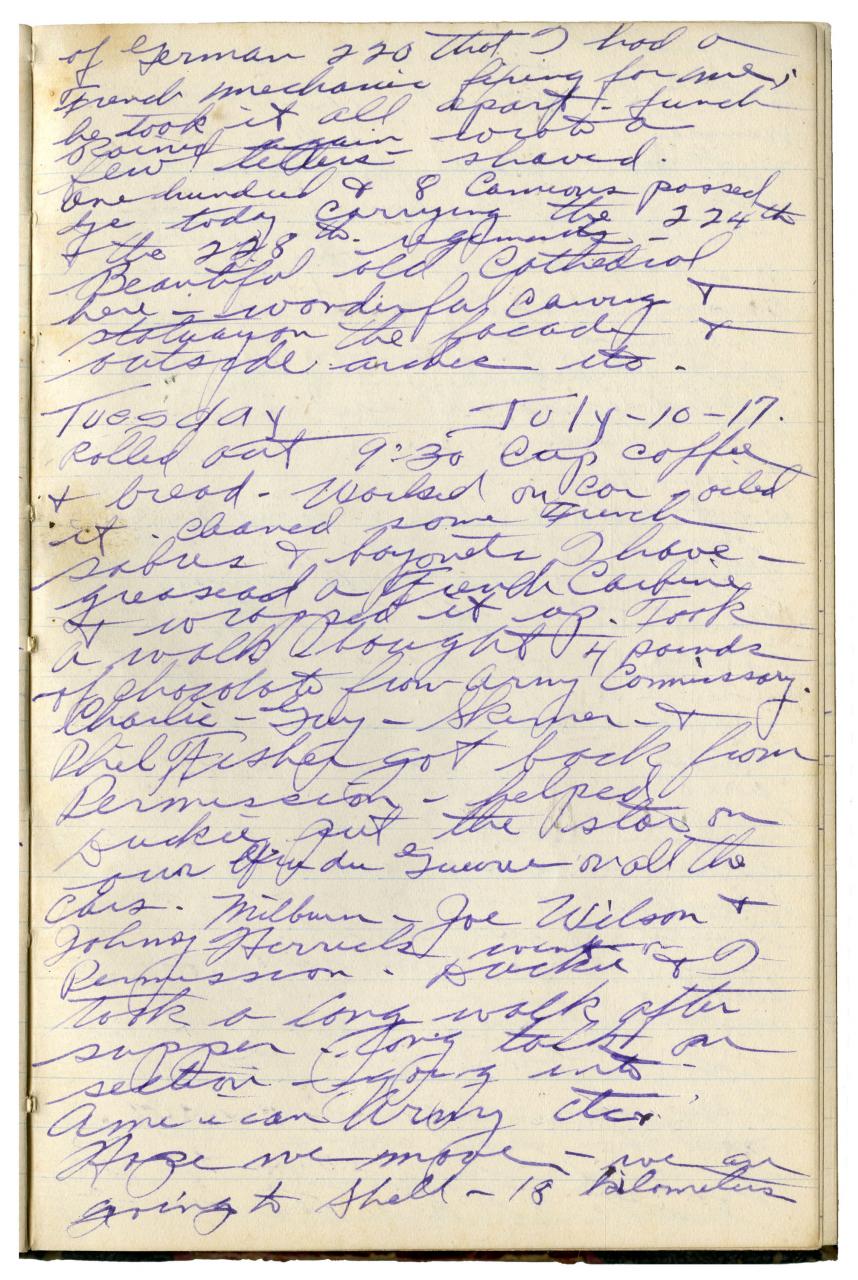 of German 220 that I had a
French mechanic fixing for me;
he took it all apart - lunch
Rained again wrote a
few letters - shaved.
One hundred & 8 Camions passed
bye today carrying the 224th
& the 228th. regiments -
Beautiful old Cathedral
here - wonderful carving &
statuary on the facade &
outside arches etc.
Tuesday July-10-17.
Rolled out 9:30 Cup coffee
& bread - Worked on car oiled
it. cleaned some French
sabres & bayonets I have -
greased a French Carbine
& wrapped it up. Took
a walk bought 4 pounds
of chocolate from army Commissary.
Charlie - Guy - Skinner - &
Phil Fisher got back from
Permission - helped
Duckie put the star on
our du Guerre on all the
cars. Milburn - Joe Wilson &
Johny Herrick went on
Permission. Duckie & I
took a long walk after
supper - long talk on
section - going into -
American Army etc.
Hope we move - we are
going to Shell - 18 kilometers